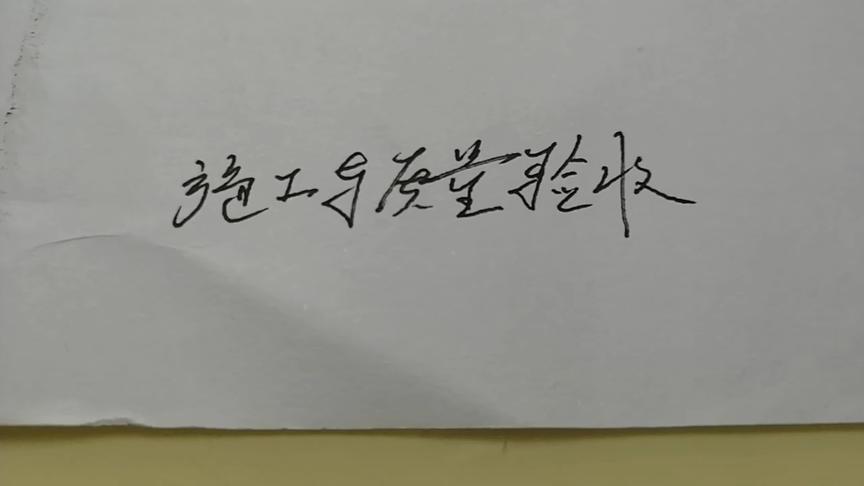 施工与质量验收